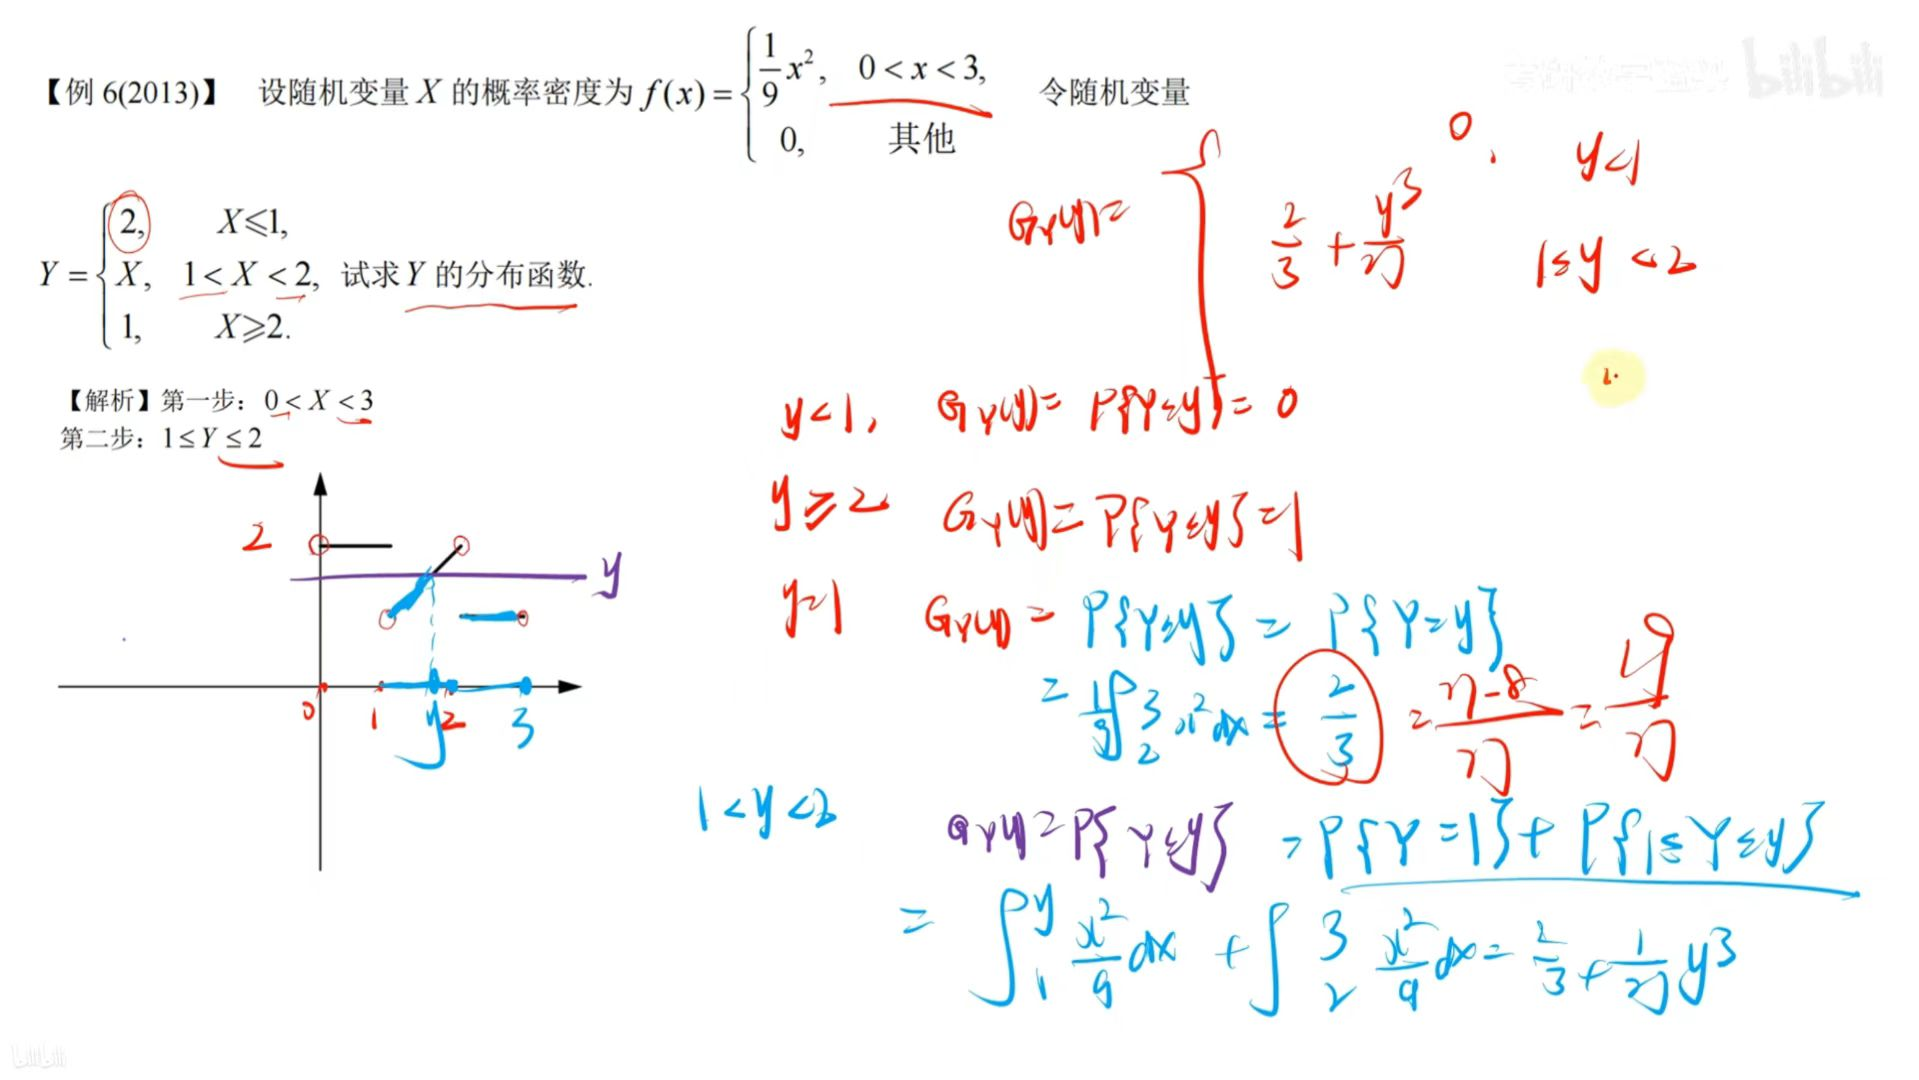 【例 6(2013)】 设随机变量 X 的概率密度为 f(x) = { 1/9 x², 0 < x < 3, 0, 其他 令随机变量
Y = { 2, X⩽1, X, 1 < X < 2, 1, X⩾2. 试求 Y 的分布函数.
【解析】第一步：0 < X < 3
第二步：1 ≤ Y ≤ 2
2
y
0 1 y 2 3
G_Y(y) = { 0, y<1
2/3 + y³/27 1≤y<2
1.
y<1, G_Y(y) = P{Y≤y} = 0
y⩾2 G_Y(y) = P{Y≤y} = 1
y=1 G_Y(y) = P{Y≤y} = P{Y=y}
= 1/9 ∫₂³ x²dx = 2/3 = 27-8/27 = 19/27
1<y<2 G_Y(y) = P{Y≤y} = P{Y=1} + P{1≤Y≤y}
= ∫₁^y x²/9 dx + ∫₂³ x²/9 dx = 2/3 + 1/27 y³
bilibili
bilibili